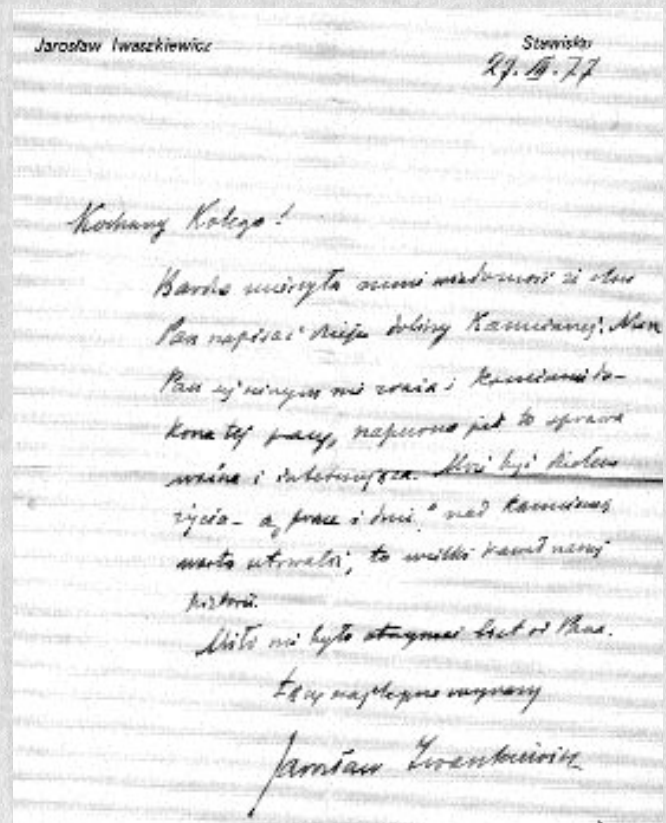 Jarosław Iwaszkiewicz
Stawisko
27. III. 77
Kochany Kolego!
Bardzo ucieszyła mnie wiadomość że chce
Pan napisać dzieje doliny Kamiennej. Niech
Pan się niczym nie zraża i koniecznie do-
kona tej pracy, napewno jest to sprawa
ważna i interesująca. Może być dziełem
życia - a „prace i dni" nad Kamienną
warto utrwalić, to wielki kawał naszej
historii.
Miło mi było otrzymać list od Pana.
Łączę najlepsze wyrazy
Jarosław Iwaszkiewicz